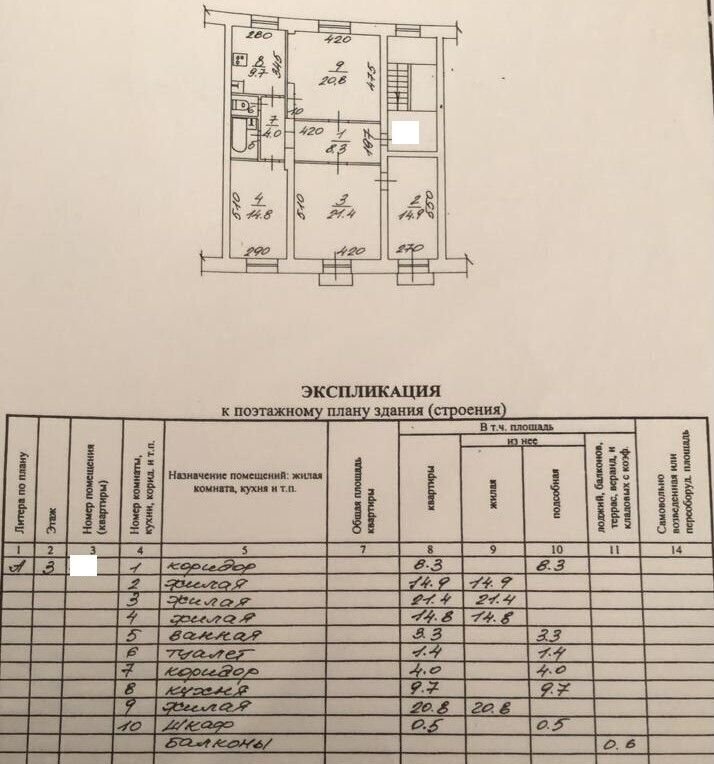 260
420
8
9.7
345
9
20.8
475
6
7
4.0
10
420
1
8.3
197
5
4
14.8
510
290
3
21.4
510
420
2
14.9
550
270
ЭКСПЛИКАЦИЯ
к поэтажному плану здания (строения)
Литера по плану
Этаж
Номер помещения (квартиры)
Номер комнаты, кухни, корид. и т.п.
Назначение помещений: жилая комната, кухня и т.п.
Общая площадь квартиры
В т.ч. площадь
квартиры
из нее
жилая
подсобная
лоджий, балконов, террас, веранд, и кладовых с коэф.
Самовольно возведенная или переоборуд. площадь
1 2 3 4 5 7 8 9 10 11 14
А 3 1 коридор 8.3 8.3
2 жилая 14.9 14.9
3 жилая 21.4 21.4
4 жилая 14.8 14.8
5 ванная 3.3 3.3
6 туалет 1.4 1.4
7 коридор 4.0 4.0
8 кухня 9.7 9.7
9 жилая 20.8 20.8
10 шкаф 0.5 0.5
балконы 0.6